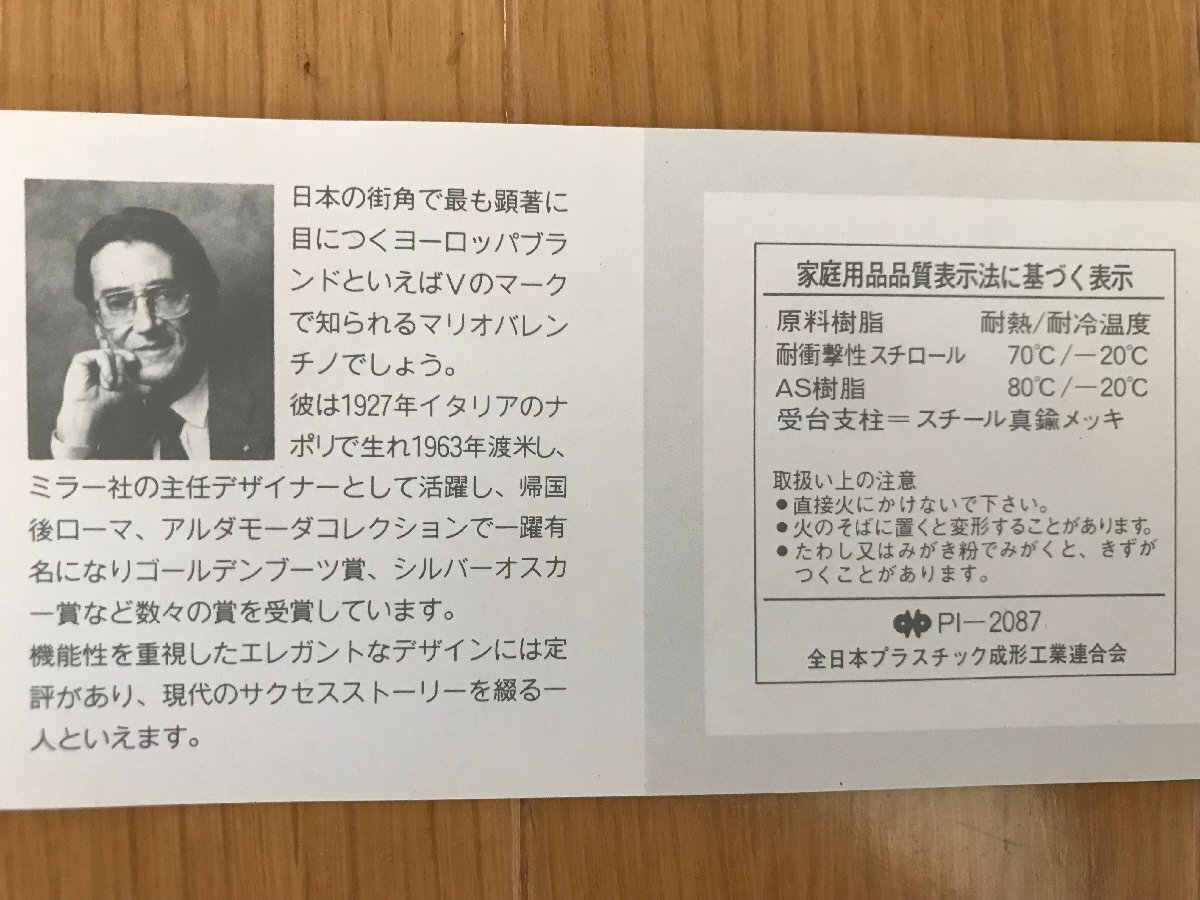 日本の街角で最も顕著に
目につくヨーロッパブラ
ンドといえばVのマーク
で知られるマリオバレン
チノでしょう。
彼は1927年イタリアのナ
ポリで生れ1963年渡米し、
ミラー社の主任デザイナーとして活躍し、帰国
後ローマ、アルダモーダコレクションで一躍有
名になりゴールデンブーツ賞、シルバーオスカ
ー賞など数々の賞を受賞しています。
機能性を重視したエレガントなデザインには定
評があり、現代のサクセスストーリーを綴る一
人といえます。
家庭用品品質表示法に基づく表示
原料樹脂 耐熱/耐冷温度
耐衝撃性スチロール 70℃/－20℃
AS樹脂 80℃/－20℃
受台支柱＝スチール真鍮メッキ
取扱い上の注意
●直接火にかけないで下さい。
●火のそばに置くと変形することがあります。
●たわし又はみがき粉でみがくと、きずが
つくことがあります。
PI－2087
全日本プラスチック成形工業連合会